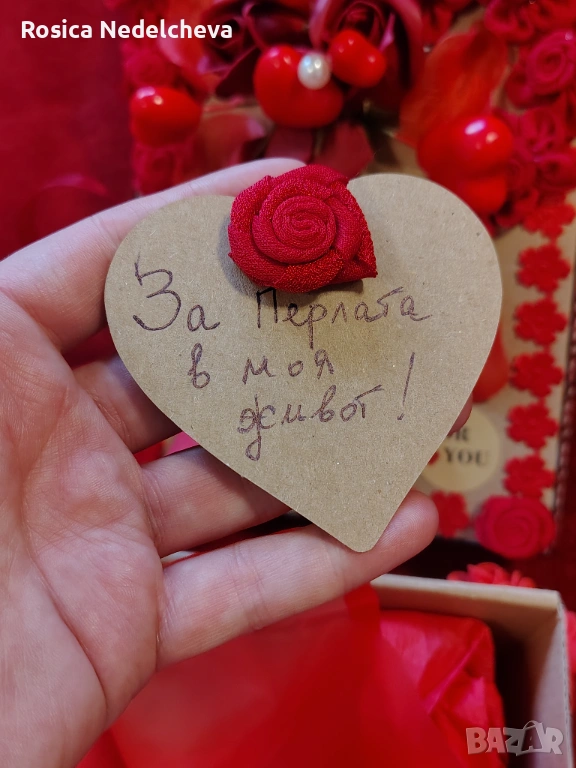 Rosica Nedelcheva
За Перлата
в моя
живот!
YOU
BAZAR